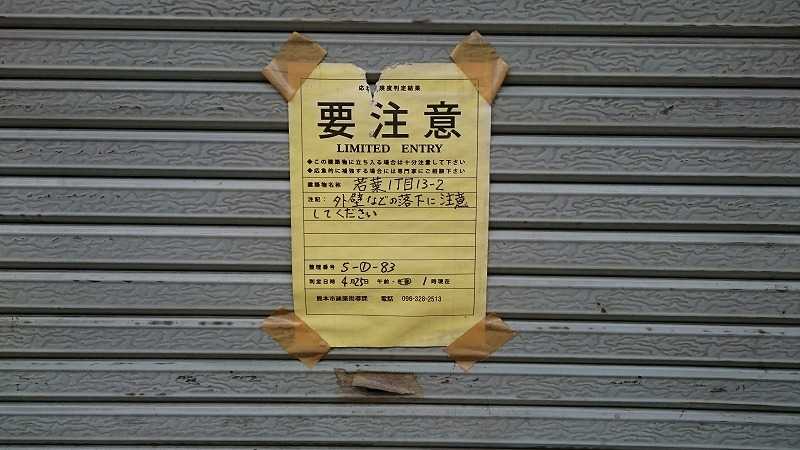 応急危険度判定結果
要注意
LIMITED ENTRY
◆この建築物に立ち入る場合は十分注意して下さい
◆応急的に補強する場合には専門家にご相談下さい
建築物名称 若葉1丁目13-2
注記: 外壁などの落下に注意
してください
整理番号 S-①-83
判定日時 4月25日 午前・午後 1時現在
熊本市建築指導課 電話 096-328-2513